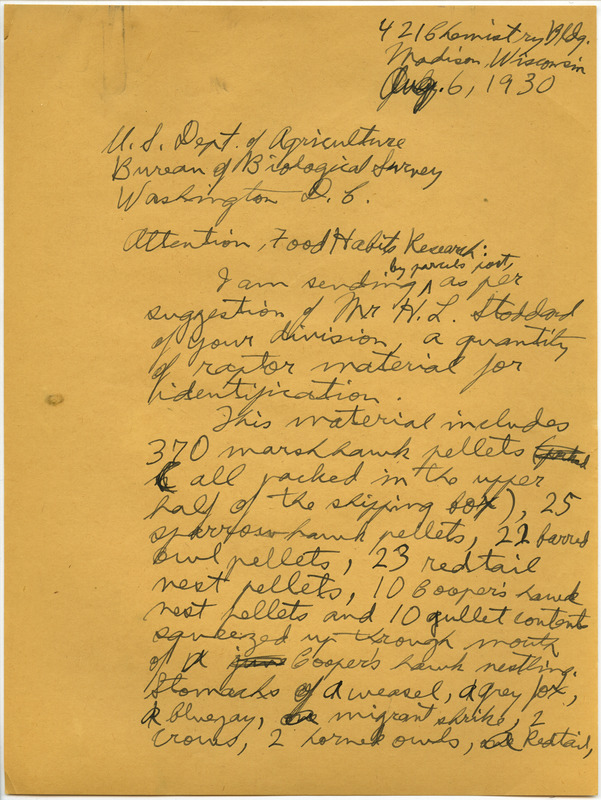 421 Chemistry Bldg.
Madison, Wisconsin
Aug. 6, 1930
U. S. Dept. of Agriculture
Bureau of Biological Survey
Washington D. C.
Attention, Food Habits Research:
I am sending by parcels post, as per
suggestion of Mr H. L. Stoddard
of your division, a quantity
of raptor material for
identification.
This material includes
370 marshhawk pellets
( all packed in the upper
half of the shipping box), 25
sparrowhawk pellets, 22 barred
owl pellets, 23 redtail
nest pellets, 10 Cooper's hawk
nest pellets and 10 gullet contents
squeezed up through mouth
of a Cooper's hawk nestling.
Stomachs of a weasel, a grey fox,
a bluejay, migrant shrike, 2
crows, 2 horned owls, Redtail,